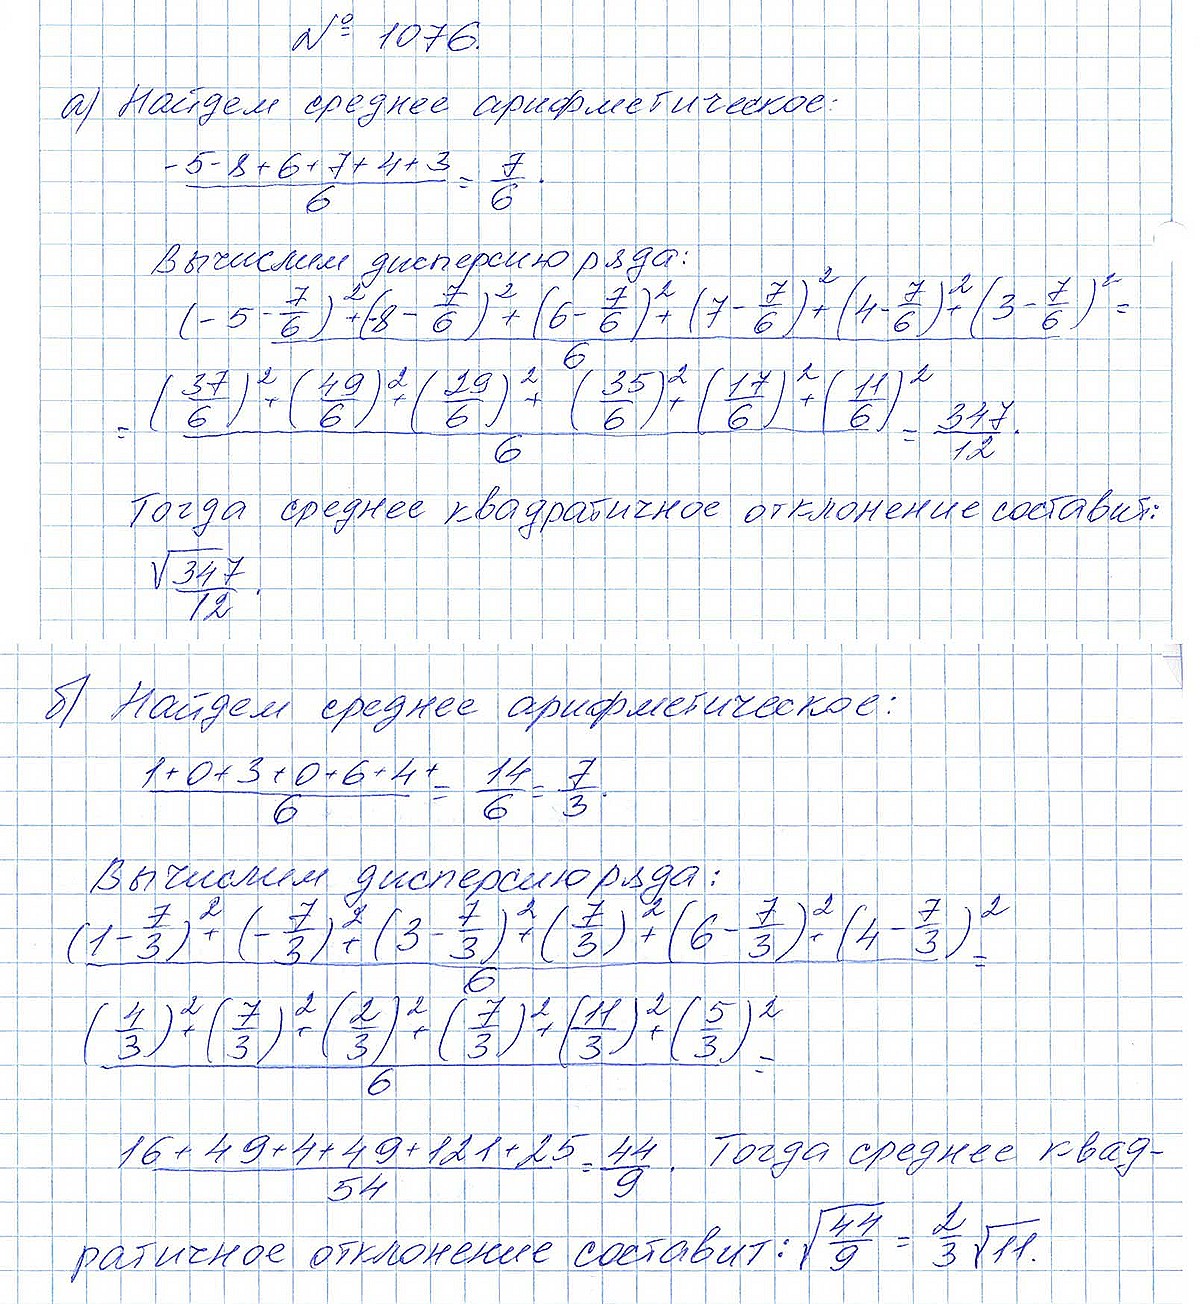 № 1076.
а) Найдем среднее арифметическое:
(-5-8+6+7+4+3)/6 = 7/6.
Вычислим дисперсию ряда:
((-5-7/6)²+(-8-7/6)²+(6-7/6)²+(7-7/6)²+(4-7/6)²+(3-7/6)²)/6 =
= ((37/6)²+(49/6)²+(29/6)²+(35/6)²+(17/6)²+(11/6)²)/6 = 347/12.
Тогда среднее квадратичное отклонение составит:
√347/12.
б) Найдем среднее арифметическое:
(1+0+3+0+6+4+)/6 = 14/6 = 7/3.
Вычислим дисперсию ряда:
((1-7/3)²+(-7/3)²+(3-7/3)²+(7/3)²+(6-7/3)²+(4-7/3)²)/6 =
((4/3)²+(7/3)²+(2/3)²+(7/3)²+(11/3)²+(5/3)²)/6 =
(16+49+4+49+121+25)/54 = 44/9. Тогда среднее квад-
ратичное отклонение составит: √44/9 = 2/3√11.